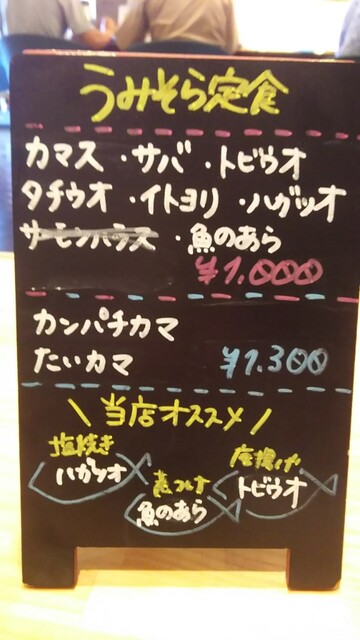 うみそら定食
カマス・サバ・トビウオ
タチウオ・イトヨリ・ハガツオ
サーモンハラス・魚のあら
¥1.000
カンパチカマ
たいカマ ¥1.300
\ 当店オススメ /
塩焼き
ハガツオ
煮つけ
魚のあら
唐揚げ
トビウオ